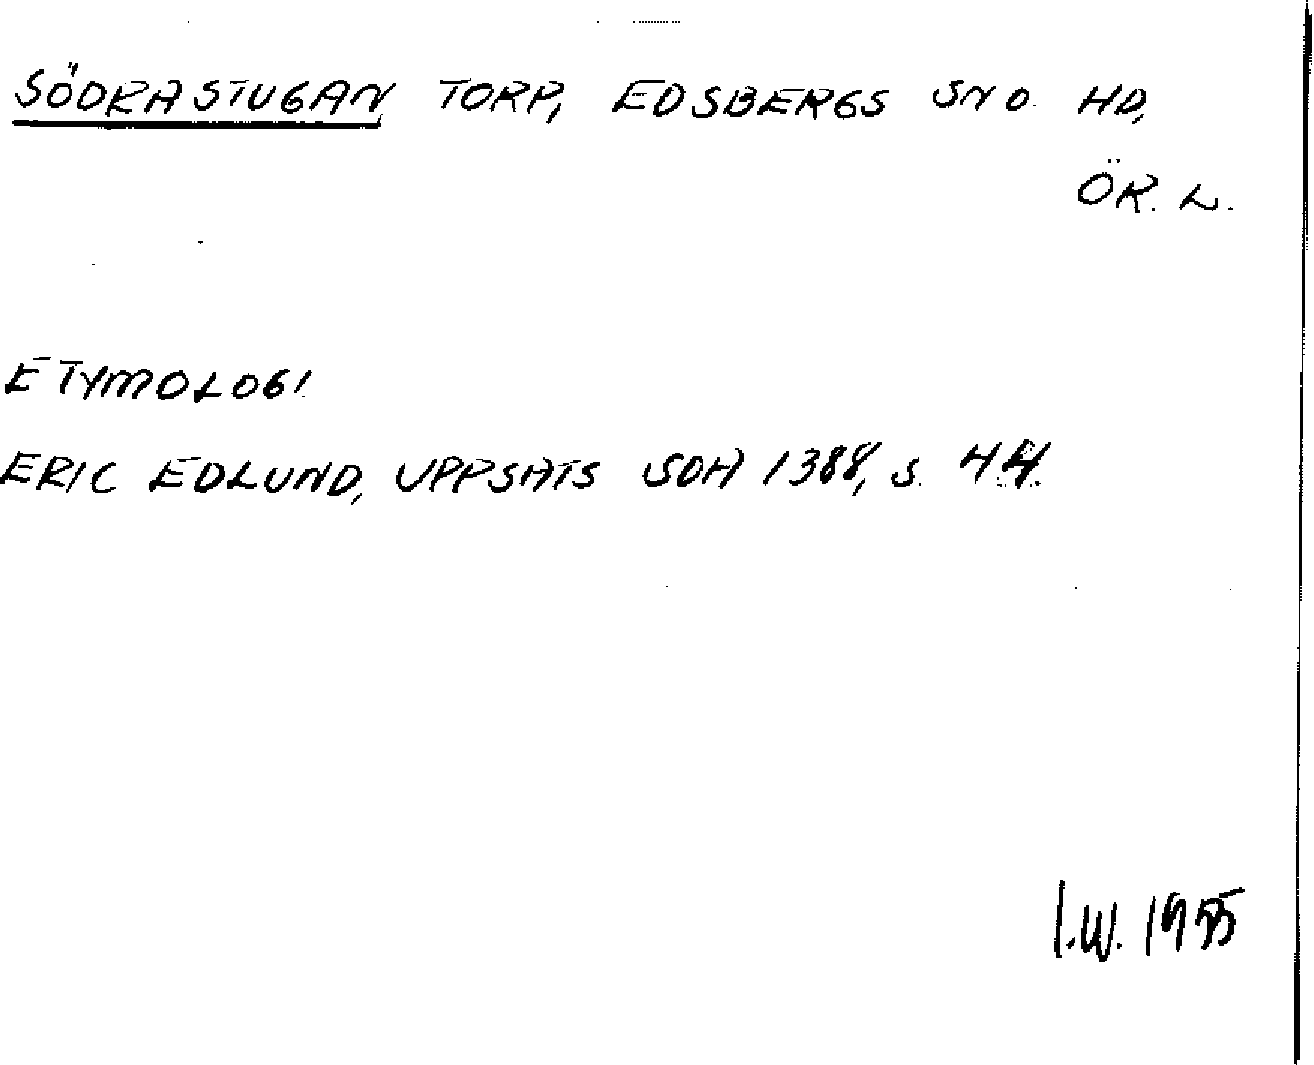 SÖDRASTUGAN, TORP, EDSBERGS SN O. HD,
ÖR. L.
ETYMOLOGI
ERIC EDLUND, UPPSATS SOA 1388, S. 44.
I.W. 1955